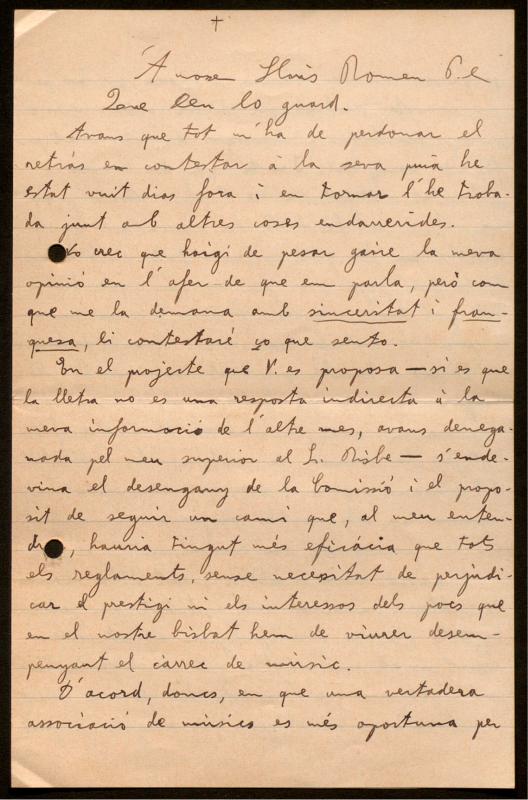 †
A mossen Lluis Romeu P.e
Que Deu lo guard.
Avans que tot m'ha de perdonar el
retrás en contestar á la seva puig he
estat vuit dias fora i en tornar l'he troba-
da junt amb altres coses endarrerides.
No crec que haigi de pesar gaire la meva
opinió en l'afer de que em parla, peró com
que me la demana amb sinceritat i fran-
quesa, li contestaré ço que sento.
En el projecte que V. es proposa — si es que
la lletra no es una resposta indirecta á la
meva informació de l'altre mes, avans denega-
nada pel meu superior al Sr. Risbe — s'ende-
vina el desengany de la Comissió i el propo-
sit de seguir un camí que, al meu enten-
dre, hauria tingut més eficácia que tots
els reglaments, sense necesitat de perjudi-
car el prestigi ni els interessos dels pocs que
en el nostre bisbat hem de viurer desem-
penyant el cárrec de músic.
D'acord, doncs, en que una vertadera
associació de músics es més oportuna per